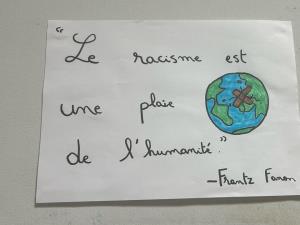 "Le racisme est
une plaie
de l'humanité."
—Frantz Fanon